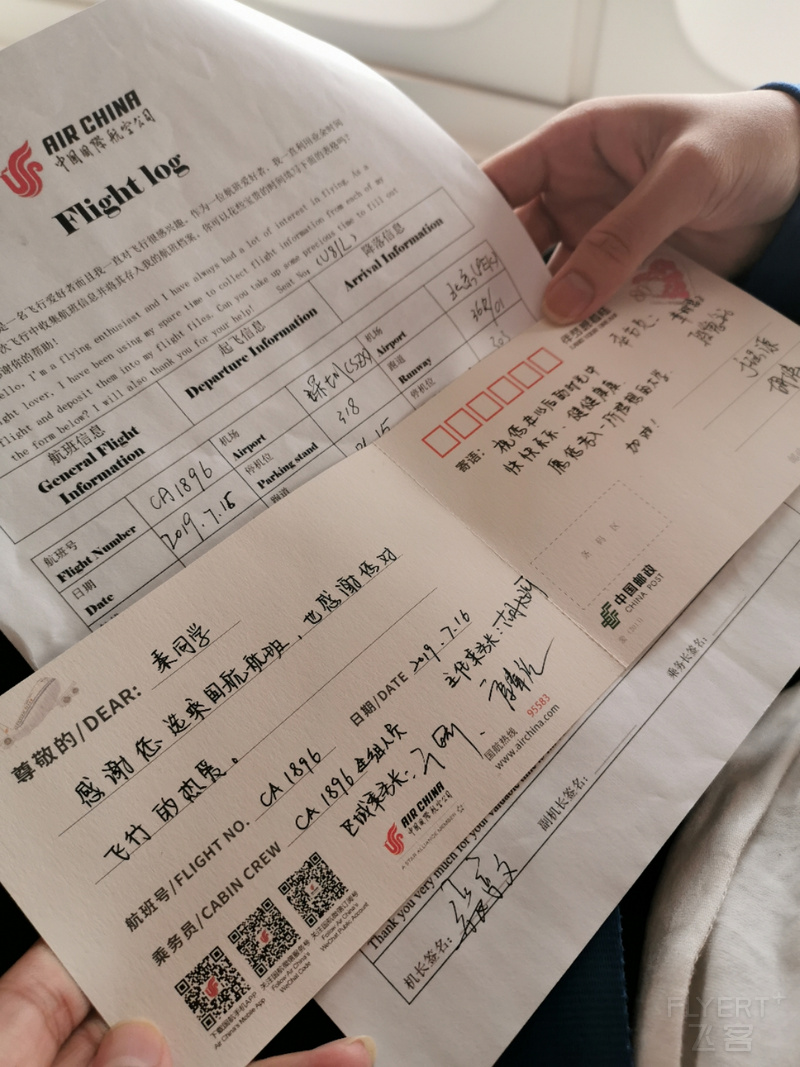 AIR CHINA
中国国际航空公司
Flight log
是一名飞行爱好者而且我一直对飞行很感兴趣。作为一位航班爱好者，我一直利用业余时间
次飞行中收集航班信息并将其存入我的航班档案。你可以花些宝贵的时间填写下面的表格吗？
感谢你的帮助！
ello, I'm a flying enthusiast and I have always had a lot of interest in flying. As a
light lover, I have been using my spare time to collect flight information from each of my
flight and deposit them into my flight files. Can you take up some precious time to fill out
the form below? I will also thank you for your help! Seat No
航班信息
General Flight
Information
起飞信息
Departure Information
降落信息
Arrival Information
航班号
Flight Number
CA1896
日期
Date
2019.7.15
机场
Airport
深圳
停机位
Parking stand
318
跑道
机场
Airport
北京
跑道
Runway
36R/01
停机位
寄语：祝您在以后的时光中
快快乐乐、健健康康
加油！
添 机 区
中国邮政
CHINA POST
尊敬的/DEAR: 秦同学
感谢您选乘国航航班，也感谢您对
飞行的热爱。
日期/DATE 2019.7.16
航班号/FLIGHT NO. CA1896
乘务员/CABIN CREW CA1896全组人员
主任乘务长：
区域乘务长：
国航热线 95583
www.airchina.com
AIR CHINA
中国国际航空公司
A STAR ALLIANCE MEMBER
下载国航手机APP
Air China's Mobile App
关注国航微信服务号
Follow Air China's
WeChat Code
关注国航微信订阅号
Follow Air China's
WeChat Public Account
Thank you very much for your valuable time
机长签名：
副机长签名：
乘务长签名：
FLYERT+
飞客